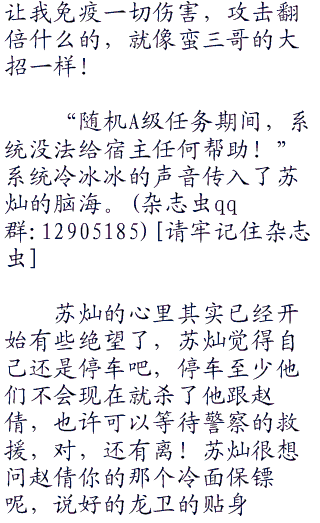 让我免疫一切伤害，攻击翻
倍什么的，就像蛮三哥的大
招一样！
“随机A级任务期间，系
统没法给宿主任何帮助！”
系统冷冰冰的声音传入了苏
灿的脑海。(杂志虫qq
群:12905185)[请牢记住杂志
虫]
苏灿的心里其实已经开
始有些绝望了，苏灿觉得自
己还是停车吧，停车至少他
们不会现在就杀了他跟赵
倩，也许可以等待警察的救
援，对，还有离！苏灿很想
问赵倩你的那个冷面保镖
呢，说好的龙卫的贴身